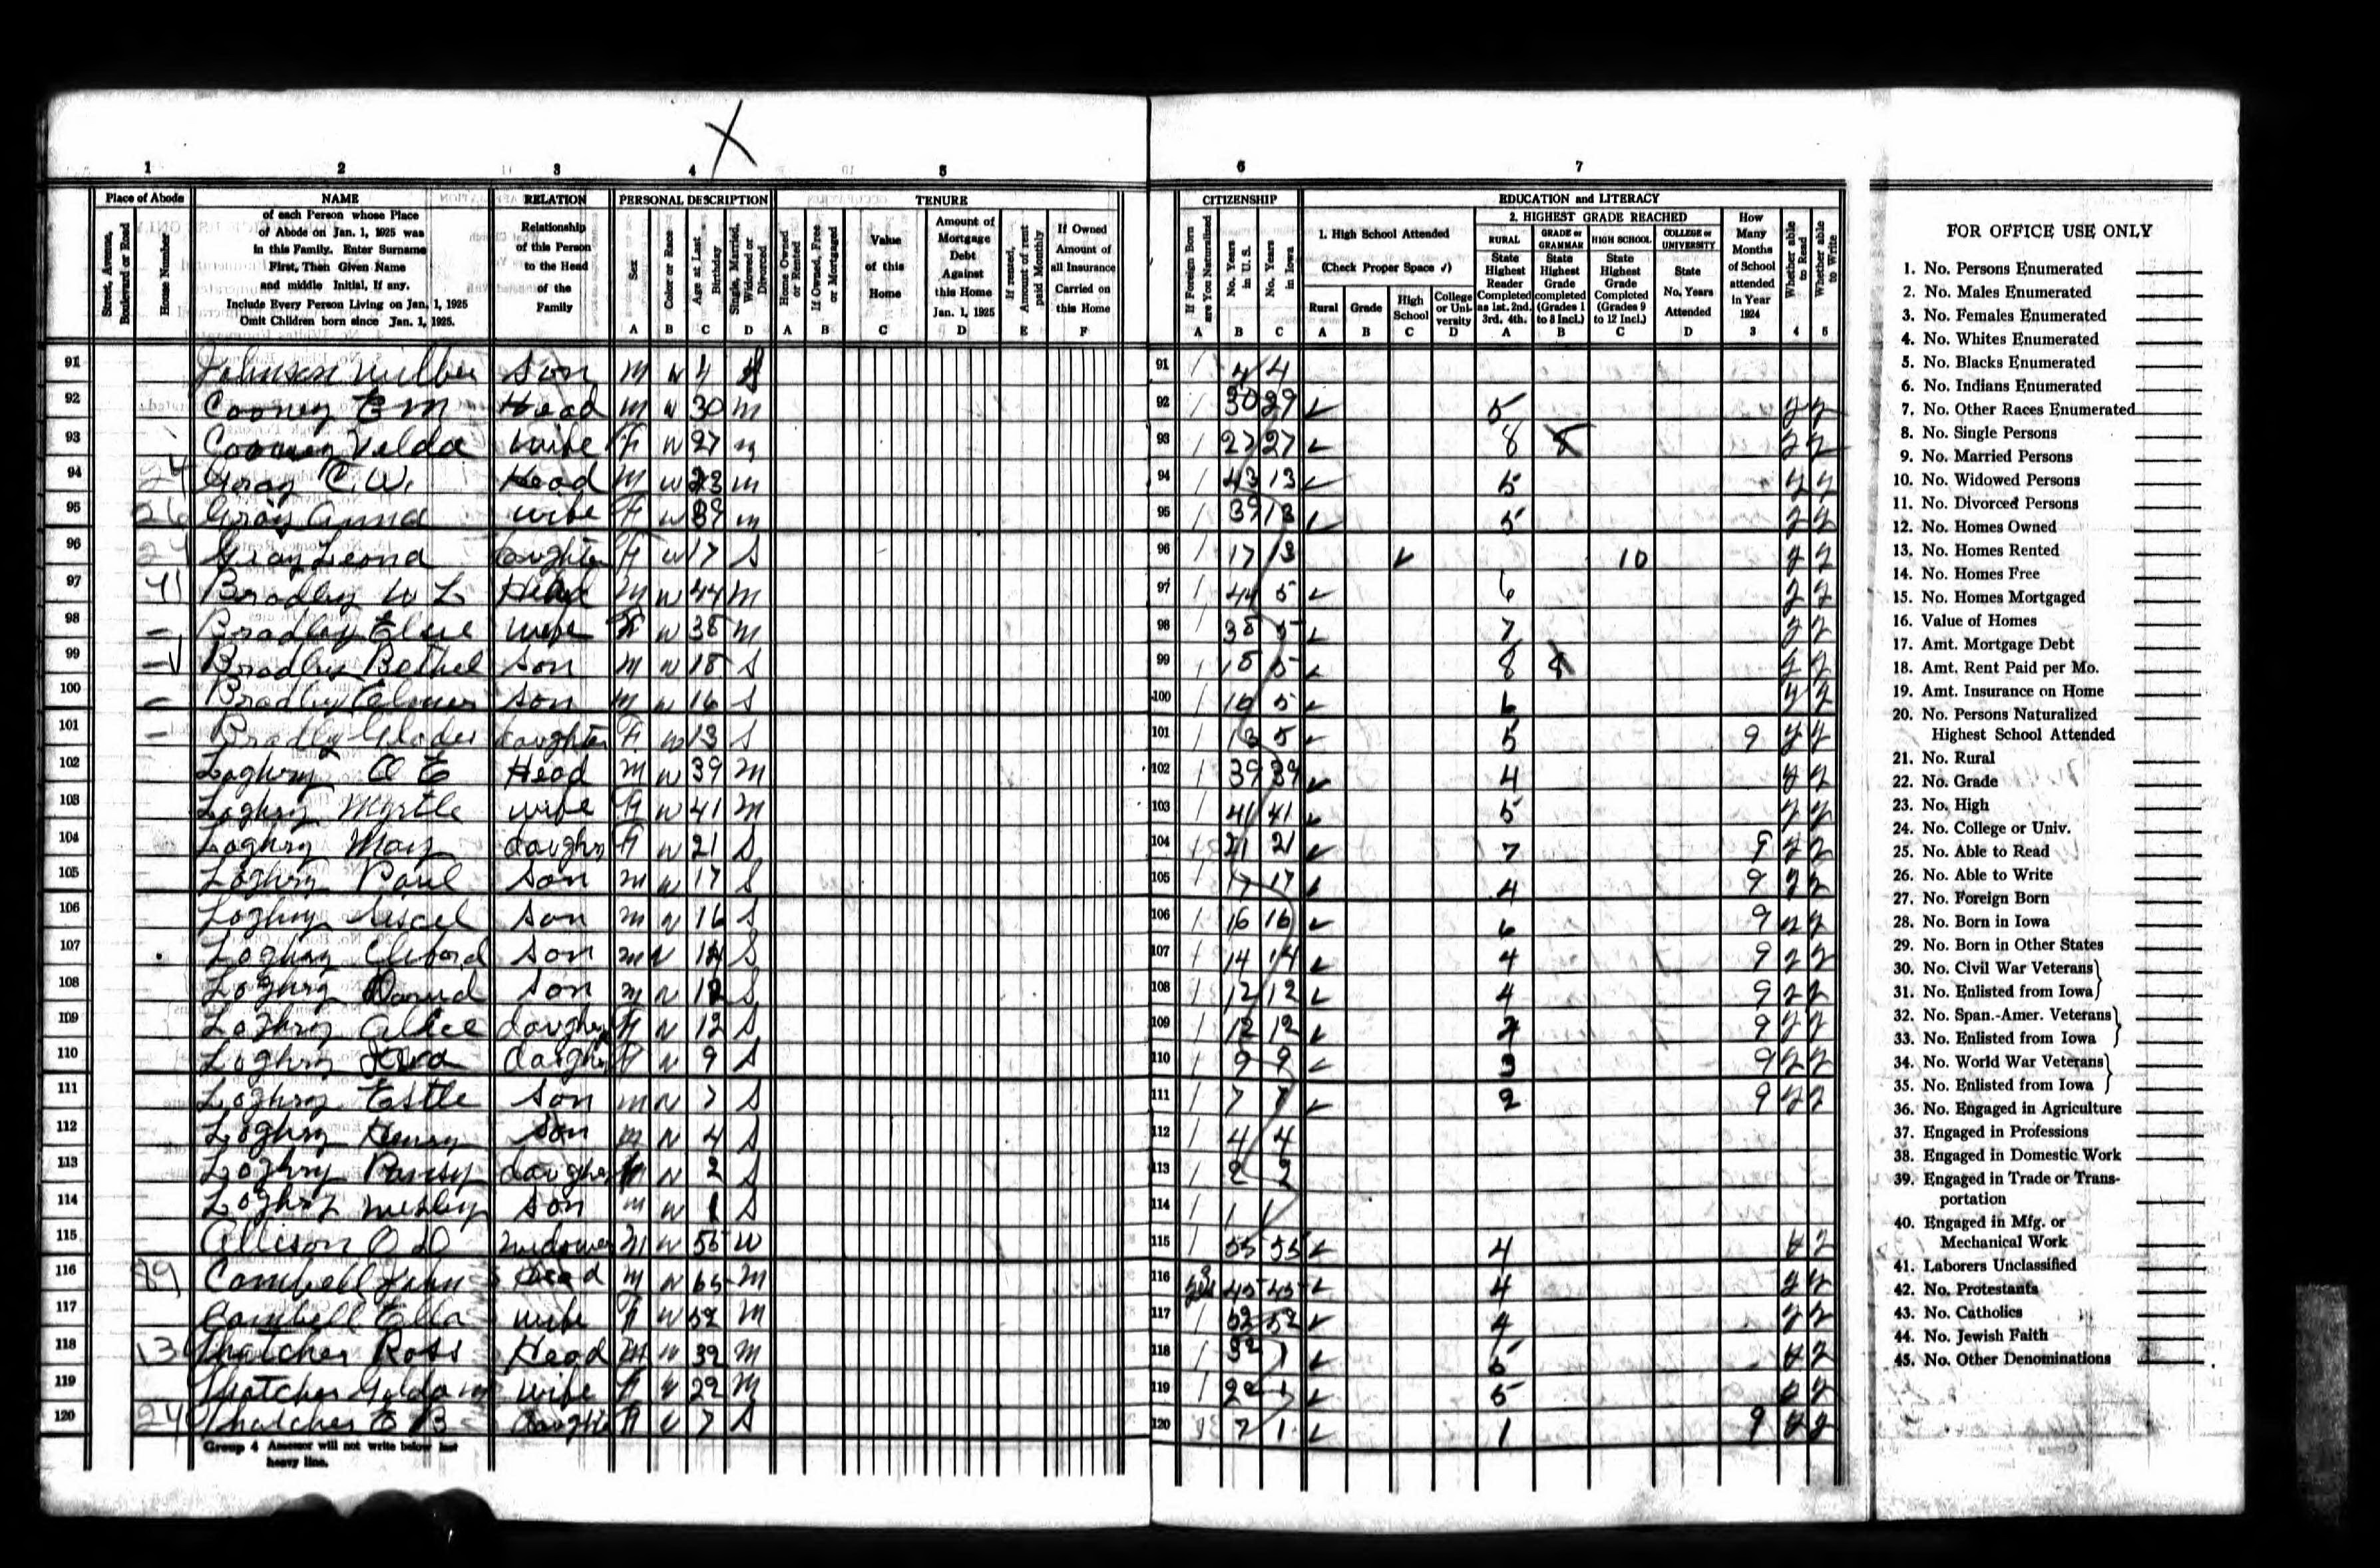 1 2 3 4 5 6 7
Place of Abode
Street, Avenue, Boulevard or Road
House Number
NAME
of each Person whose Place
of Abode on Jan. 1, 1925 was
in this Family. Enter Surname
First, Then Given Name
and middle Initial, if any.
Include Every Person Living on Jan. 1, 1925
Omit Children born since Jan. 1, 1925.
RELATION
Relationship
of this Person
to the Head
of the
Family
PERSONAL DESCRIPTION
Sex A
Color or Race B
Age at Last Birthday C
Single, Married, Widowed or Divorced D
TENURE
Home Owned or Rented A
If Owned, Free or Mortgaged B
Value of this Home C
Amount of Mortgage Debt Against this Home Jan. 1, 1925 D
If rented, Amount of rent paid Monthly E
If Owned Amount of all Insurance Carried on this Home F
CITIZENSHIP
If Foreign Born are You Naturalized A
No. Years in U. S. B
No. Years in Iowa C
EDUCATION and LITERACY
1. High School Attended
(Check Proper Space ✓)
Rural A
Grade B
High School C
College or University D
2. HIGHEST GRADE REACHED
RURAL State Highest Reader Completed as 1st. 2nd. 3rd. 4th. A
GRADE or GRAMMAR State Highest Grade completed (Grades 1 to 8 Incl.) B
HIGH SCHOOL State Highest Grade Completed (Grades 9 to 12 Incl.) C
COLLEGE or UNIVERSITY State No. Years Attended D
How Many Months of School attended in Year 1924 3
Whether able to Read 4
Whether able to Write 5
91 Johnson Wilber Son M W 4 91 4 4
92 Cooney E M Head M W 30 M 92 30 29 ✓ 5 y y
93 Cooney Velda wife F W 27 M 93 27 27 ✓ 8 y y
94 Gray C. W. Head M W 43 M 94 43 13 ✓ 5 y y
95 26 Gray Anna wife F W 39 M 95 39 13 ✓ 5 y y
96 Gray Leona daughter F W 17 S 96 17 13 ✓ 10 y y
97 41 Bradley W L Head M W 44 M 97 44 5 ✓ 6 y y
98 Bradley Elsie wife F W 38 M 98 38 5 ✓ 7 y y
99 Bradley Bethel Son M W 18 S 99 18 5 ✓ 8 y y
100 Bradley Elmer Son M W 16 S 100 16 5 ✓ 6 y y
101 Bradly Glades daughter F W 13 S 101 13 5 ✓ 5 9 y y
102 Loghry O E Head M W 39 M 102 39 39 ✓ 4 y y
103 Loghry Myrtle wife F W 41 M 103 41 41 ✓ 5 y y
104 Loghry Mary daughr F W 21 S 104 21 21 ✓ 7 9 y y
105 Loghry Paul Son M W 17 S 105 17 17 ✓ 4 9 y y
106 Loghry Son M W 16 S 106 16 16 ✓ 6 9 y y
107 Loghry Son M W 14 S 107 14 14 ✓ 4 9 y y
108 Loghry Son M W 12 S 108 12 12 ✓ 4 9 y y
109 Loghry Alice daughter F W 12 S 109 12 12 ✓ 9 y y
110 Loghry daughter F W 9 S 110 9 9 ✓ 3 9 y y
111 Loghry Estle Son M W 7 S 111 7 7 ✓ 2 9 y y
112 Loghry Henry Son M W 4 S 112 4 4
113 Loghry Pansy daughter W 2 S 113 2 2
114 Loghry Wesley Son M W 1 S 114 1 1
115 Allison O D widower M W 55 W 115 55 55 ✓ 4 y y
116 89 Cambell John Head M W 65 M 116 yes 45 45 ✓ 4 y y
117 Cambell Ella wife F W 52 M 117 52 52 ✓ 4 y y
118 13 Thatcher Ross Head M W 32 M 118 32 1 ✓ y y
119 Thatcher wife F W 22 M 119 22 1 ✓ 5 y y
120 24 Thatcher E B daughter F W 7 S 120 7 1 ✓ 1 9 y y
Group 4 Assessor will not write below last
heavy line.
FOR OFFICE USE ONLY
1. No. Persons Enumerated
2. No. Males Enumerated
3. No. Females Enumerated
4. No. Whites Enumerated
5. No. Blacks Enumerated
6. No. Indians Enumerated
7. No. Other Races Enumerated
8. No. Single Persons
9. No. Married Persons
10. No. Widowed Persons
11. No. Divorced Persons
12. No. Homes Owned
13. No. Homes Rented
14. No. Homes Free
15. No. Homes Mortgaged
16. Value of Homes
17. Amt. Mortgage Debt
18. Amt. Rent Paid per Mo.
19. Amt. Insurance on Home
20. No. Persons Naturalized
Highest School Attended
21. No. Rural
22. No. Grade
23. No. High
24. No. College or Univ.
25. No. Able to Read
26. No. Able to Write
27. No. Foreign Born
28. No. Born in Iowa
29. No. Born in Other States
30. No. Civil War Veterans
31. No. Enlisted from Iowa
32. No. Span.-Amer. Veterans
33. No. Enlisted from Iowa
34. No. World War Veterans
35. No. Enlisted from Iowa
36. No. Engaged in Agriculture
37. Engaged in Professions
38. Engaged in Domestic Work
39. Engaged in Trade or Trans-
portation
40. Engaged in Mfg. or
Mechanical Work
41. Laborers Unclassified
42. No. Protestants
43. No. Catholics
44. No. Jewish Faith
45. No. Other Denominations